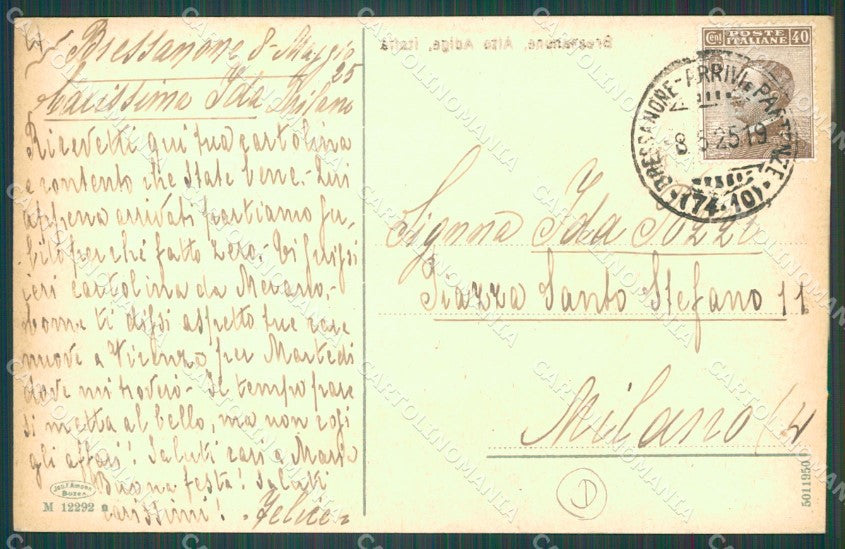 Bressanone 8-Maggio
25
Carissima Ida Milano
Ricevetti qui tua cartolina
e contento che state bene.- Qui
appena arrivati partiamo su-
bito perché fatto zero.- Vi
ieri cartolina da Merano,-
Come ti dissi aspetto tue
nuove a Vicenza per Martedì
dove mi troverò- Il tempo pare
si metta al bello, ma non così
gli affari! Saluti cari a Mario
Buona festa! Saluti
carissimi! Felice
Jos. F. Amonn
Bozen
M 12292
Bressanone, Alto Adige, Italia
Cent POSTE ITALIANE 40
BRESSANONE-ARRIVI E PARTENZE
8.5.25 19
(74-10)
Signna Ida Pozzi
Piazza Santo Stefano 11
Milano
D
5011950
CARTOLINOMANIA